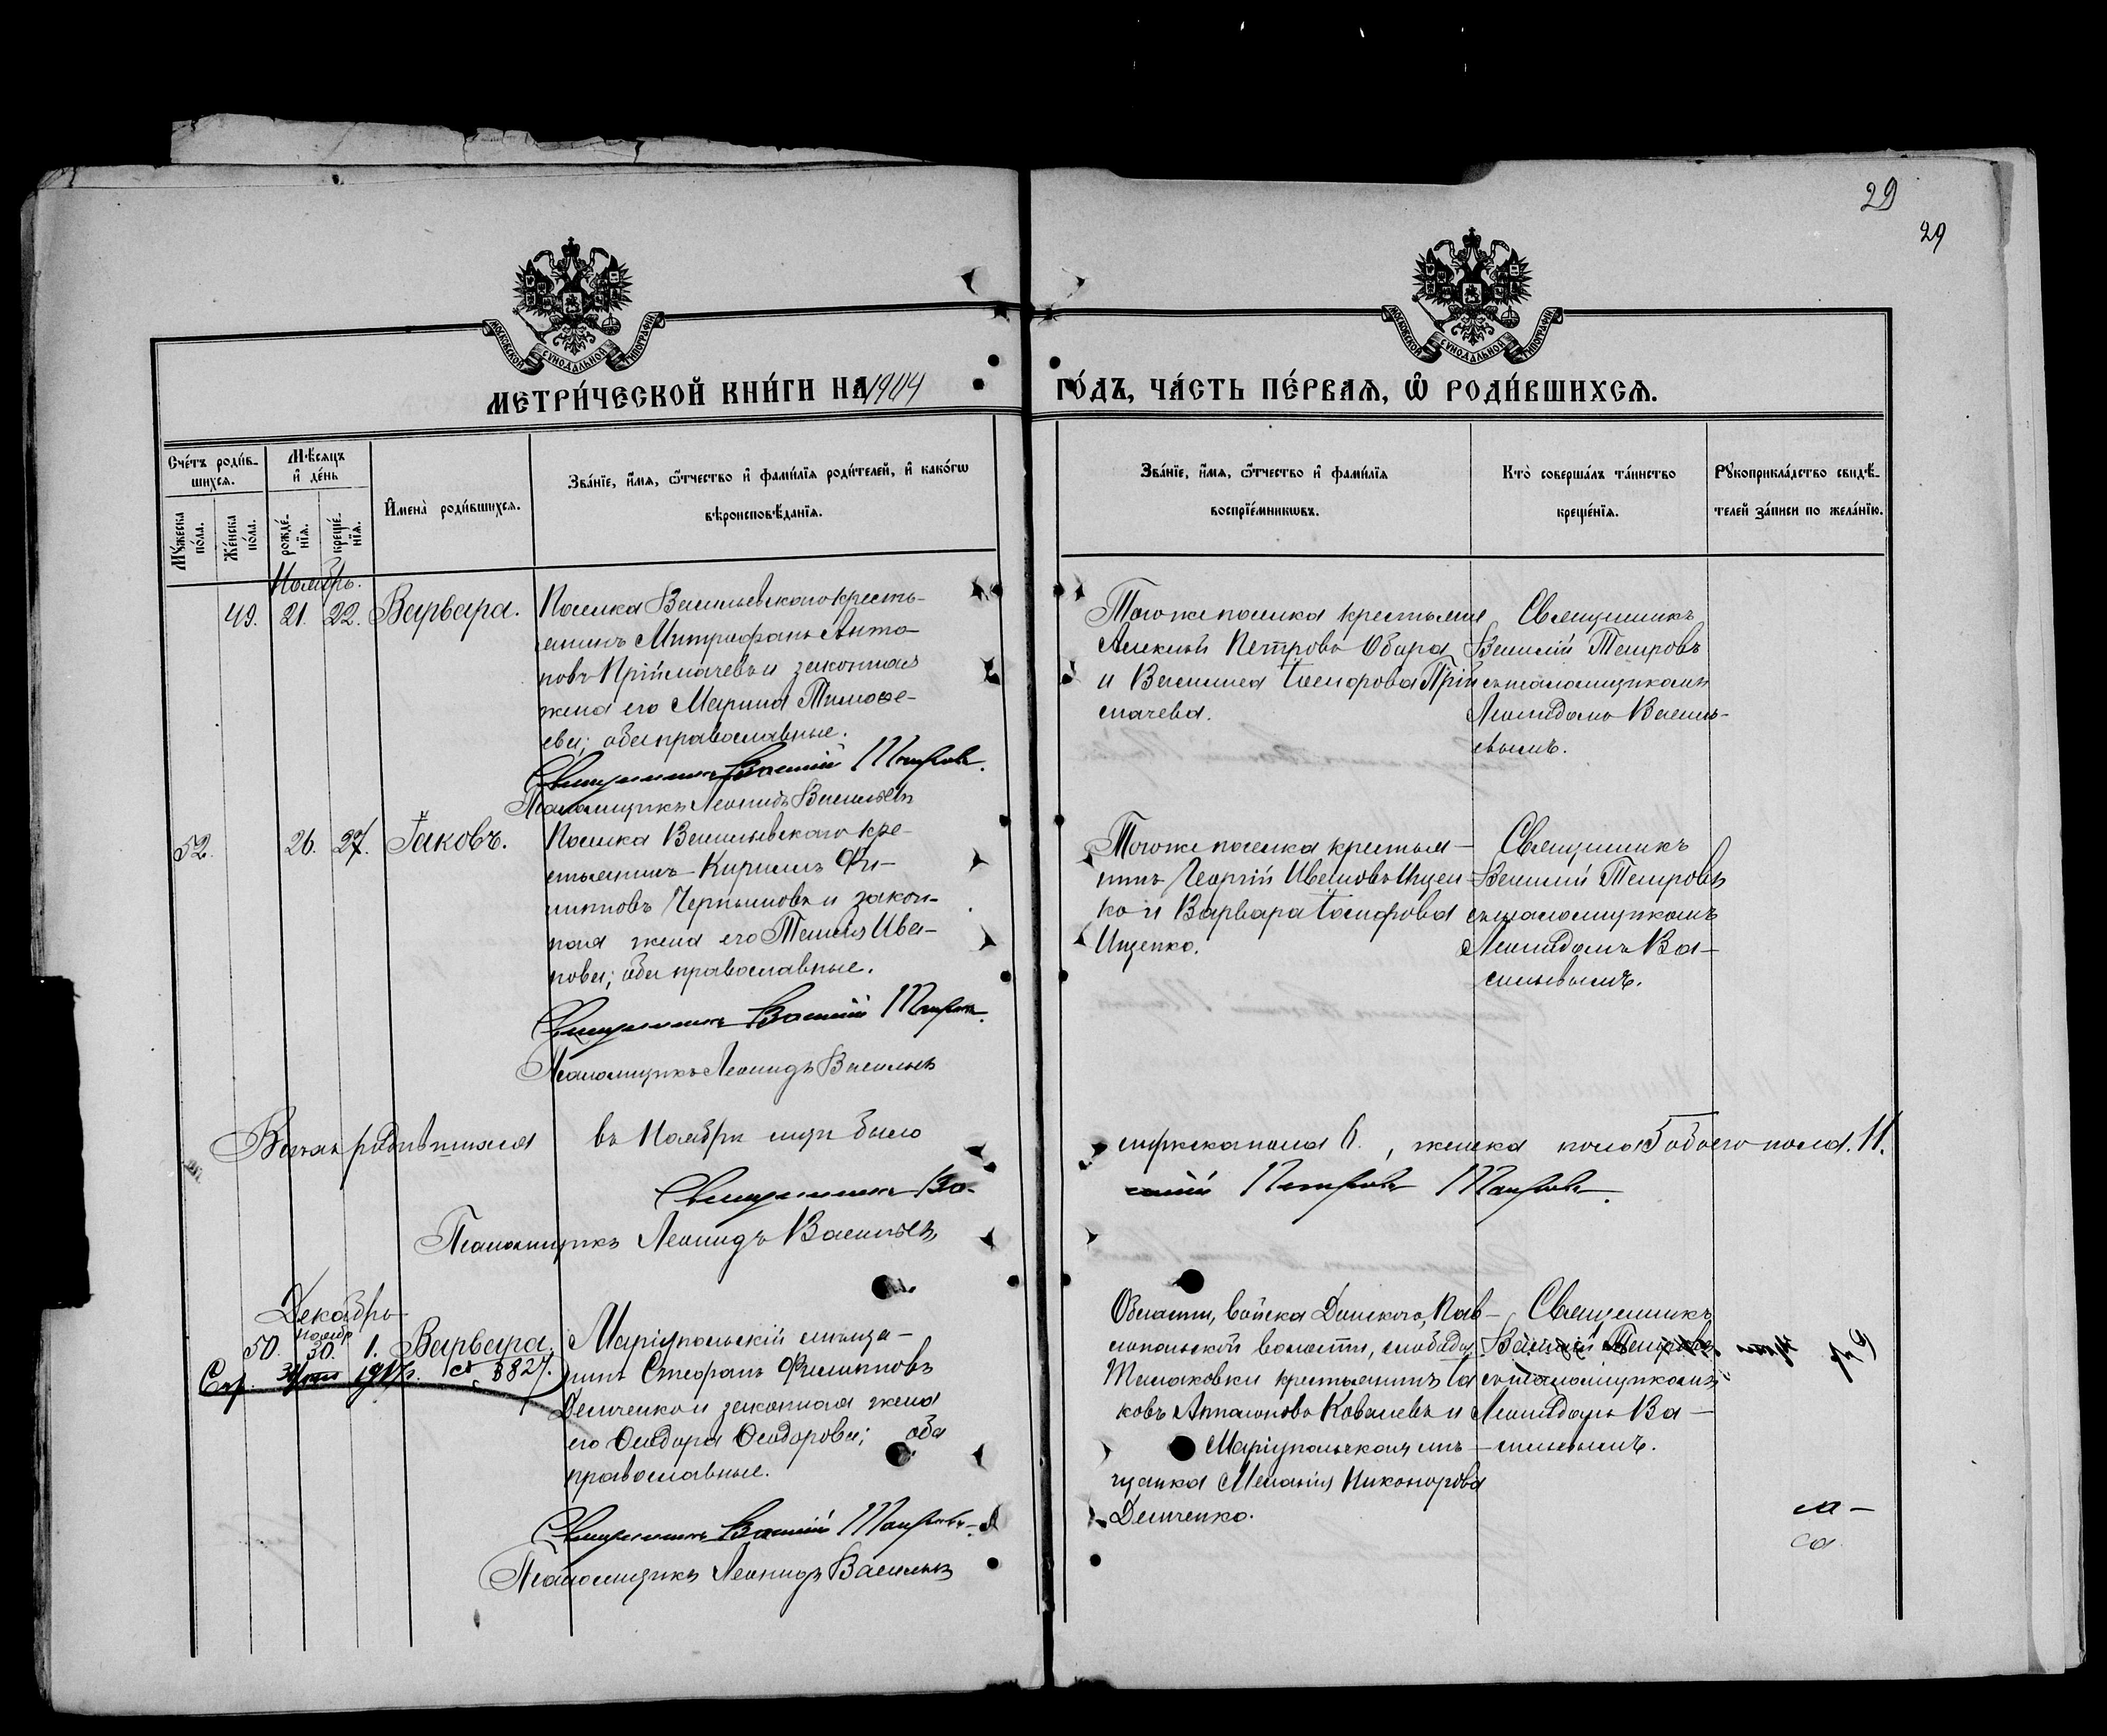 29
29
МОСКОВСКОЙ СѴНОДАЛЬНОЙ ТИПОГРАФІИ
МОСКОВСКОЙ СѴНОДАЛЬНОЙ ТИПОГРАФІИ
МЕТРИ́ЧЕСКОЙ КНИ́ГИ НА 1904 ГО́ДЪ, ЧА́СТЬ ПЕ́РВАѦ, Ѽ РОДИ́ВШИХСѦ.
Сче́тъ роди́в-
шихсѧ.
Мꙋ́жеска по́ла.
Же́нска по́ла.
Мѣ́сѧцъ и҆ де́нь
рожде́-нїѧ.
креще́-нїѧ.
И҆мена̀ роди́вшихсѧ.
Зва́нїе, и҆́мѧ, ѻ҆́тчество и҆ фами́лїѧ роди́телей, и҆ како́гѡ
вѣроисповѣ́данїѧ.
Зва́нїе, и҆́мѧ, ѻ҆́тчество и҆ фами́лїѧ
воспрїе́мникѡвъ.
Кто̀ соверша́лъ та́инство
креще́нїѧ.
Рꙋкоприкла́дство свидѣ́-
телей за́писи по жела́нїю.
Ноябрь.
49. 21. 22. Варвара.
Поселка Васильевскаго кресть-
янинъ Митрофанъ Анто-
новъ Пріймачевъ и законная
жена его Марина Тимоѳе-
ева; оба православные.
Священникъ Василій Петровъ.
Псаломщикъ Леонидъ Васильевъ
Того же поселка крестьяне
Алексѣй Петровъ Обара
и Василиса Іосифова Прій
мачева.
Священникъ
Василій Петровъ
съ псаломщикомъ
Леонидомъ Василь-
евымъ.
52. 26. 27. Іаковъ.
Поселка Васильевскаго кре-
стьянинъ Кириллъ Фи-
липповъ Чернышовъ и закон-
ная жена его Ива-
нова; оба православные.
Священникъ Василій Петровъ.
Псаломщикъ Леонидъ Васильевъ
Того же поселка крестья-
нинъ Георгій Ивановъ Ищен
ко и Варвара Іосифова
Ищенко.
Священникъ
Василій Петровъ
съ псаломщикомъ
Леонидомъ Ва-
сильевымъ.
Всехъ родившихся въ Ноябрѣ мцѣ было мужска пола 6, женска пола 5 обоего пола 11.
Священникъ Ва-
силій Петровъ
Псаломщикъ Леонидъ Васильевъ
Декабрь
ноябр
50. 30. 1. Варвара.
1917г. 3827.
Маріупольскій мѣща-
нинъ Стефанъ Филипповъ
Демченко и законная жена
его Ѳеодора Ѳеодорова; оба
православные.
Священникъ Василій Петровъ
Псаломщикъ Леонидъ Васильевъ
Области, войска Донского, Пав-
лопольской волости, слободы
крестьянинъ Іа
ковъ Ковалевъ и
Маріупольская мѣ-
щанка Меланія Никонорова
Демченко.
Священникъ
Василій Петровъ
съ псаломщикомъ
Леонидомъ Ва-
сильевымъ.